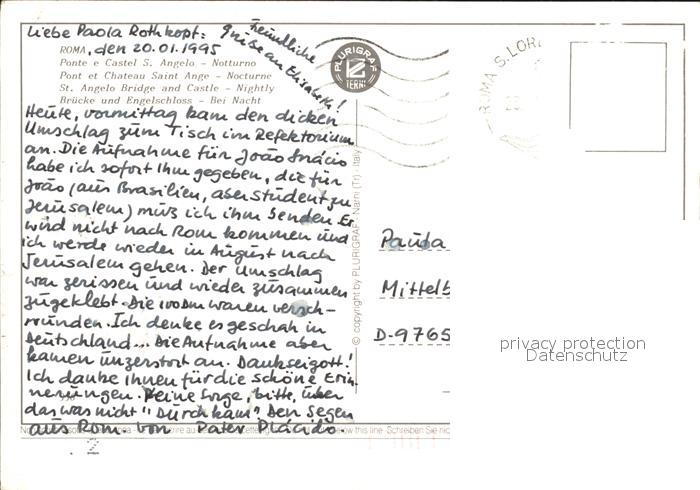 Liebe Paola Rothkopf:
Freundliche
Grüße an Elisabeth!
ROMA, den 20.01.1995
Ponte e Castel S. Angelo - Notturno
Pont et Chateau Saint Ange - Nocturne
St. Angelo Bridge and Castle - Nightly
Brücke und Engelschloss - Bei Nacht
Heute, vormittag kam den dicken
Umschlag zum Tisch im Refektorium
an. Die Aufnahme für João Inácio
habe ich sofort Ihm gegeben, die für
João (aus Brasilien, aber Student zu
Jerusalem) muß ich ihm senden. Er
wird nicht nach Rom kommen und
ich werde wieder in August nach
Jerusalem gehen. Der Umschlag
war zerissen und wieder zusammen
zugeklebt. Die waren versch-
wunden. Ich denke es geschah in
Deutschland... Die Aufnahme aber
kamen unzerstort an. Dankseigott!
Ich danke Ihnen für die schöne Erin
nerungen. Keine Sorge, bitte, über
das was nicht "Durchkam" Den Segen
aus Rom. von Pater Plácido.
PLURIGRAF
TERNI
ROMA S. LOR
© copyright by PLURIGRAF - Narni (Tr) - Italy
Paula
Mittelb
D-9765
privacy protection
Datenschutz
below this line Schreiben Sie nic
2